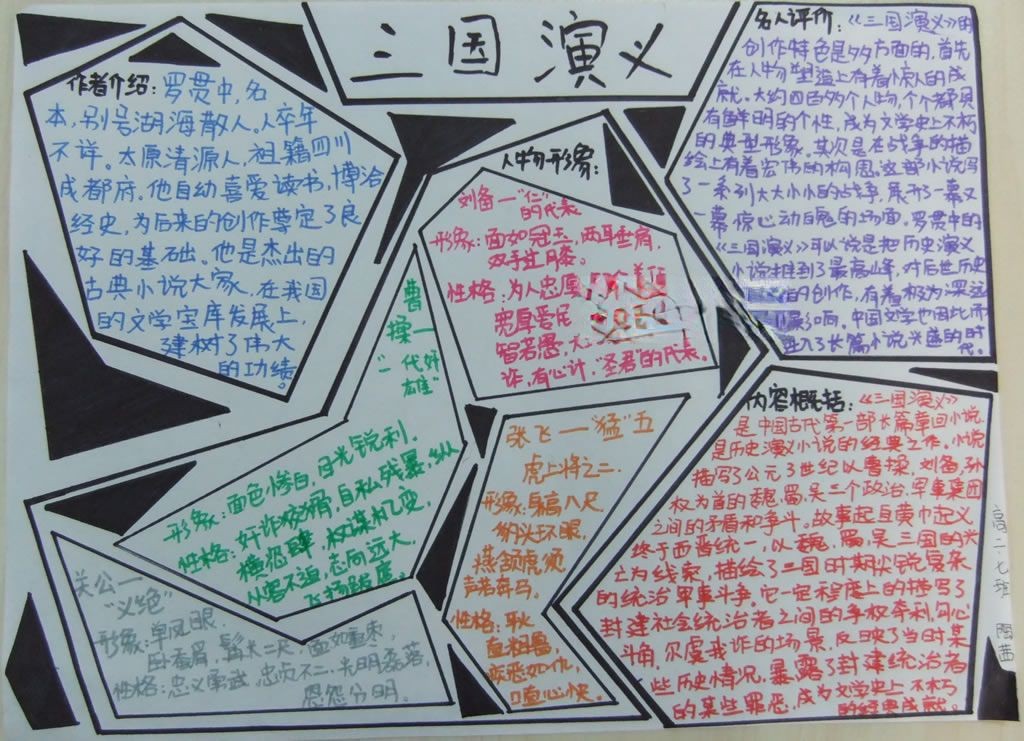 三国演义
作者介绍：罗贯中，名
本，别号湖海散人。人卒年
不详。太原清源人，祖籍四川
成都府。他自幼喜爱读书，博洽
经史，为后来的创作奠定了良
好的基础。他是杰出的
古典小说大家，在我国
的文学宝库发展上，
建树了伟大
的功绩。
人物形象：
刘备一"仁"
的代表
形象：面如冠玉，两耳垂肩，
双手过膝。
性格：为人忠愿
宽厚爱民
智若愚，
诈，有心计，"圣君"的代表。
曹操一
"一代奸
雄"
形象：面色惨白，目光锐利。
性格：奸诈狡猾，自私残暴，纵
横恣肆，权谋机变，
从容不迫，志向远大，
飞扬跋扈。
张飞一"猛"五
虎上将之二.
形象：身高八尺
豹头环眼，
燕颔虎须
声若奔马。
性格：
直粗鲁，
疾恶如仇，
口直心快。
关公一
"义绝"
形象：单凤眼，
卧蚕眉，髯长二尺，面如重枣，
性格：忠义勇武，忠贞不二，光明磊落，
恩怨分明。
名人评价：《三国演义》的
创作特色是多方面的，首先
在人物塑造上有着惊人的成
就。大约四百多个人物，个个都具
有鲜明的个性，成为文学史上不朽
的典型形象。其次是在战争的描
绘上有着宏伟的构思。这部小说写
了一系列大大小小的战争，展开了一幕又
一幕惊心动魄的场面。罗贯中的
《三国演义》可以说是把历史演义
小说推到了最高峰，对后世历史
的创作，有着极为深远
影响。中国文学也因此而
进入了长篇小说兴盛的时
代。
内容概括：《三国演义》
是中国古代第一部长篇章回小说，
是历史演义小说的经典之作。小说
描写了公元3世纪以曹操，刘备，孙
权为首的魏、蜀、吴三个政治、军事集团
之间的矛盾和争斗。故事起自黄巾起义
终于西晋统一，以魏，蜀，吴三国的兴
亡为线索，描绘了三国时期尖锐复杂
的统治军事斗争。它一定程度上的描写了
封建社会统治者之间的争权夺利，勾心
斗角，尔虞我诈的场景，反映了当时某
些历史情况，暴露了封建统治者
的某些罪恶，成为文学史上不朽
的经典成就。
高二七班 陶茜